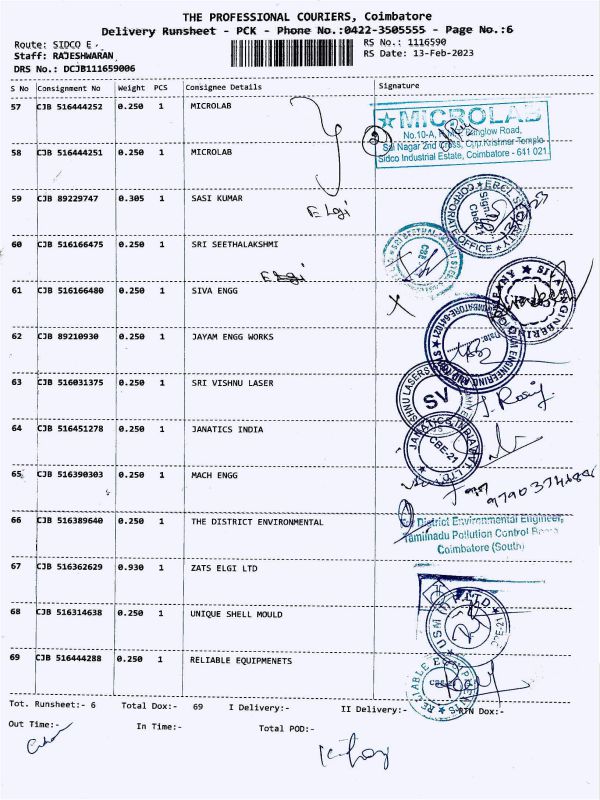 THE PROFESSIONAL COURIERS, Coimbatore
Delivery Runsheet - PCK - Phone No.:0422-3505555 - Page No.:6
Route: SIDCO E RS No.: 1116590
Staff: RAJESHWARAN RS Date: 13-Feb-2023
DRS No.: DCJB111659006
S No Consignment No Weight PCS Consignee Details Signature
57 CJB 516444252 0.250 1 MICROLAB
MICROLAB
No.10-A, Bunglow Road,
Sai Nagar 2nd Cross, Opp.Krishner Temple
Sidco Industrial Estate, Coimbatore - 641 021
58 CJB 516444251 0.250 1 MICROLAB
59 CJB 89229747 0.305 1 SASI KUMAR
Elgi
CORPORATE OFFICE
60 CJB 516166475 0.250 1 SRI SEETHALAKSHMI
Elgi
61 CJB 516166480 0.250 1 SIVA ENGG
SIVA ENGINEERING
62 CJB 89210930 0.250 1 JAYAM ENGG WORKS
63 CJB 516031375 0.250 1 SRI VISHNU LASER
SV
64 CJB 516451278 0.250 1 JANATICS INDIA
JANATICS INDIA PVT. LTD.
CBE-21
65 CJB 516390303 0.250 1 MACH ENGG
66 CJB 516389640 0.250 1 THE DISTRICT ENVIRONMENTAL
District Environmental Engineer,
Tamilnadu Pollution Control Board
Coimbatore (South)
67 CJB 516362629 0.930 1 ZATS ELGI LTD
68 CJB 516314638 0.250 1 UNIQUE SHELL MOULD
USM (I) P LTD
69 CJB 516444288 0.250 1 RELIABLE EQUIPMENETS
RELIABLE EQUIPMENTS
Tot. Runsheet:- 6 Total Dox:- 69 I Delivery:- II Delivery:- RTN Dox:-
Out Time:- In Time:- Total POD:-